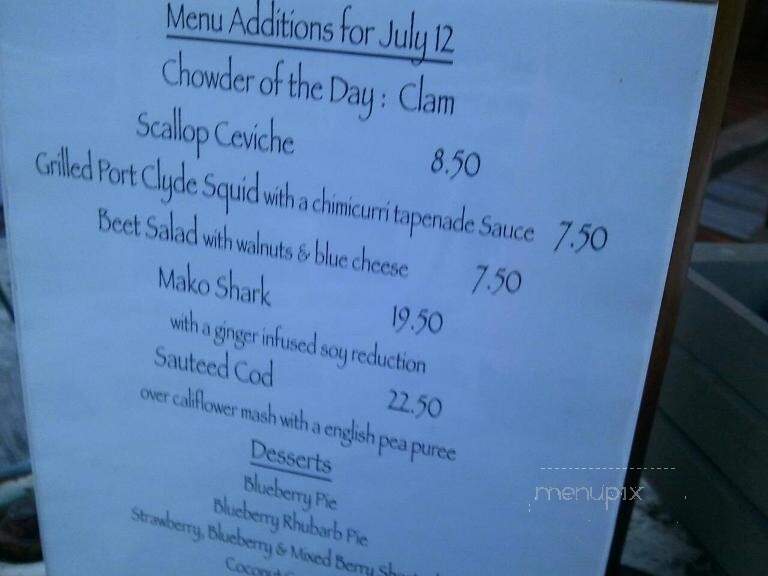 Menu Additions for July 12
Chowder of the Day : Clam
Scallop Ceviche 8.50
Grilled Port Clyde Squid with a chimicurri tapenade Sauce 7.50
Beet Salad with walnuts & blue cheese 7.50
Mako Shark 19.50
with a ginger infused soy reduction
Sauteed Cod 22.50
over califlower mash with a english pea puree
Desserts
Blueberry Pie
Blueberry Rhubarb Pie
Strawberry, Blueberry & Mixed Berry
Coconut
menupix